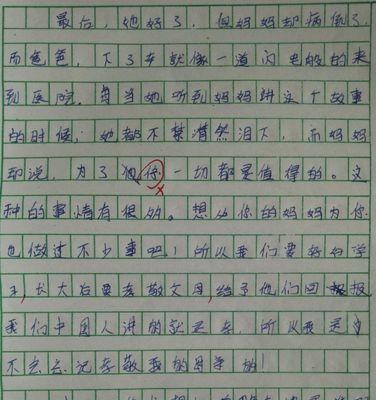 最后，她好了，但妈妈却病倒了，
而爸爸，下了车就像一道闪电般的来
到医院，每当她听到妈妈讲这个故事
的时候，她都不禁潸然泪下，而妈妈
却说，为了你一切都是值得的。这
种的事情有很多。想必你的妈妈为你
也做过不少事吧！所以我们要好好学
习，长大后要孝敬父母，给予他们回报
我们中国人讲的就是孝，所以我是
不会忘记孝敬我的母亲的！